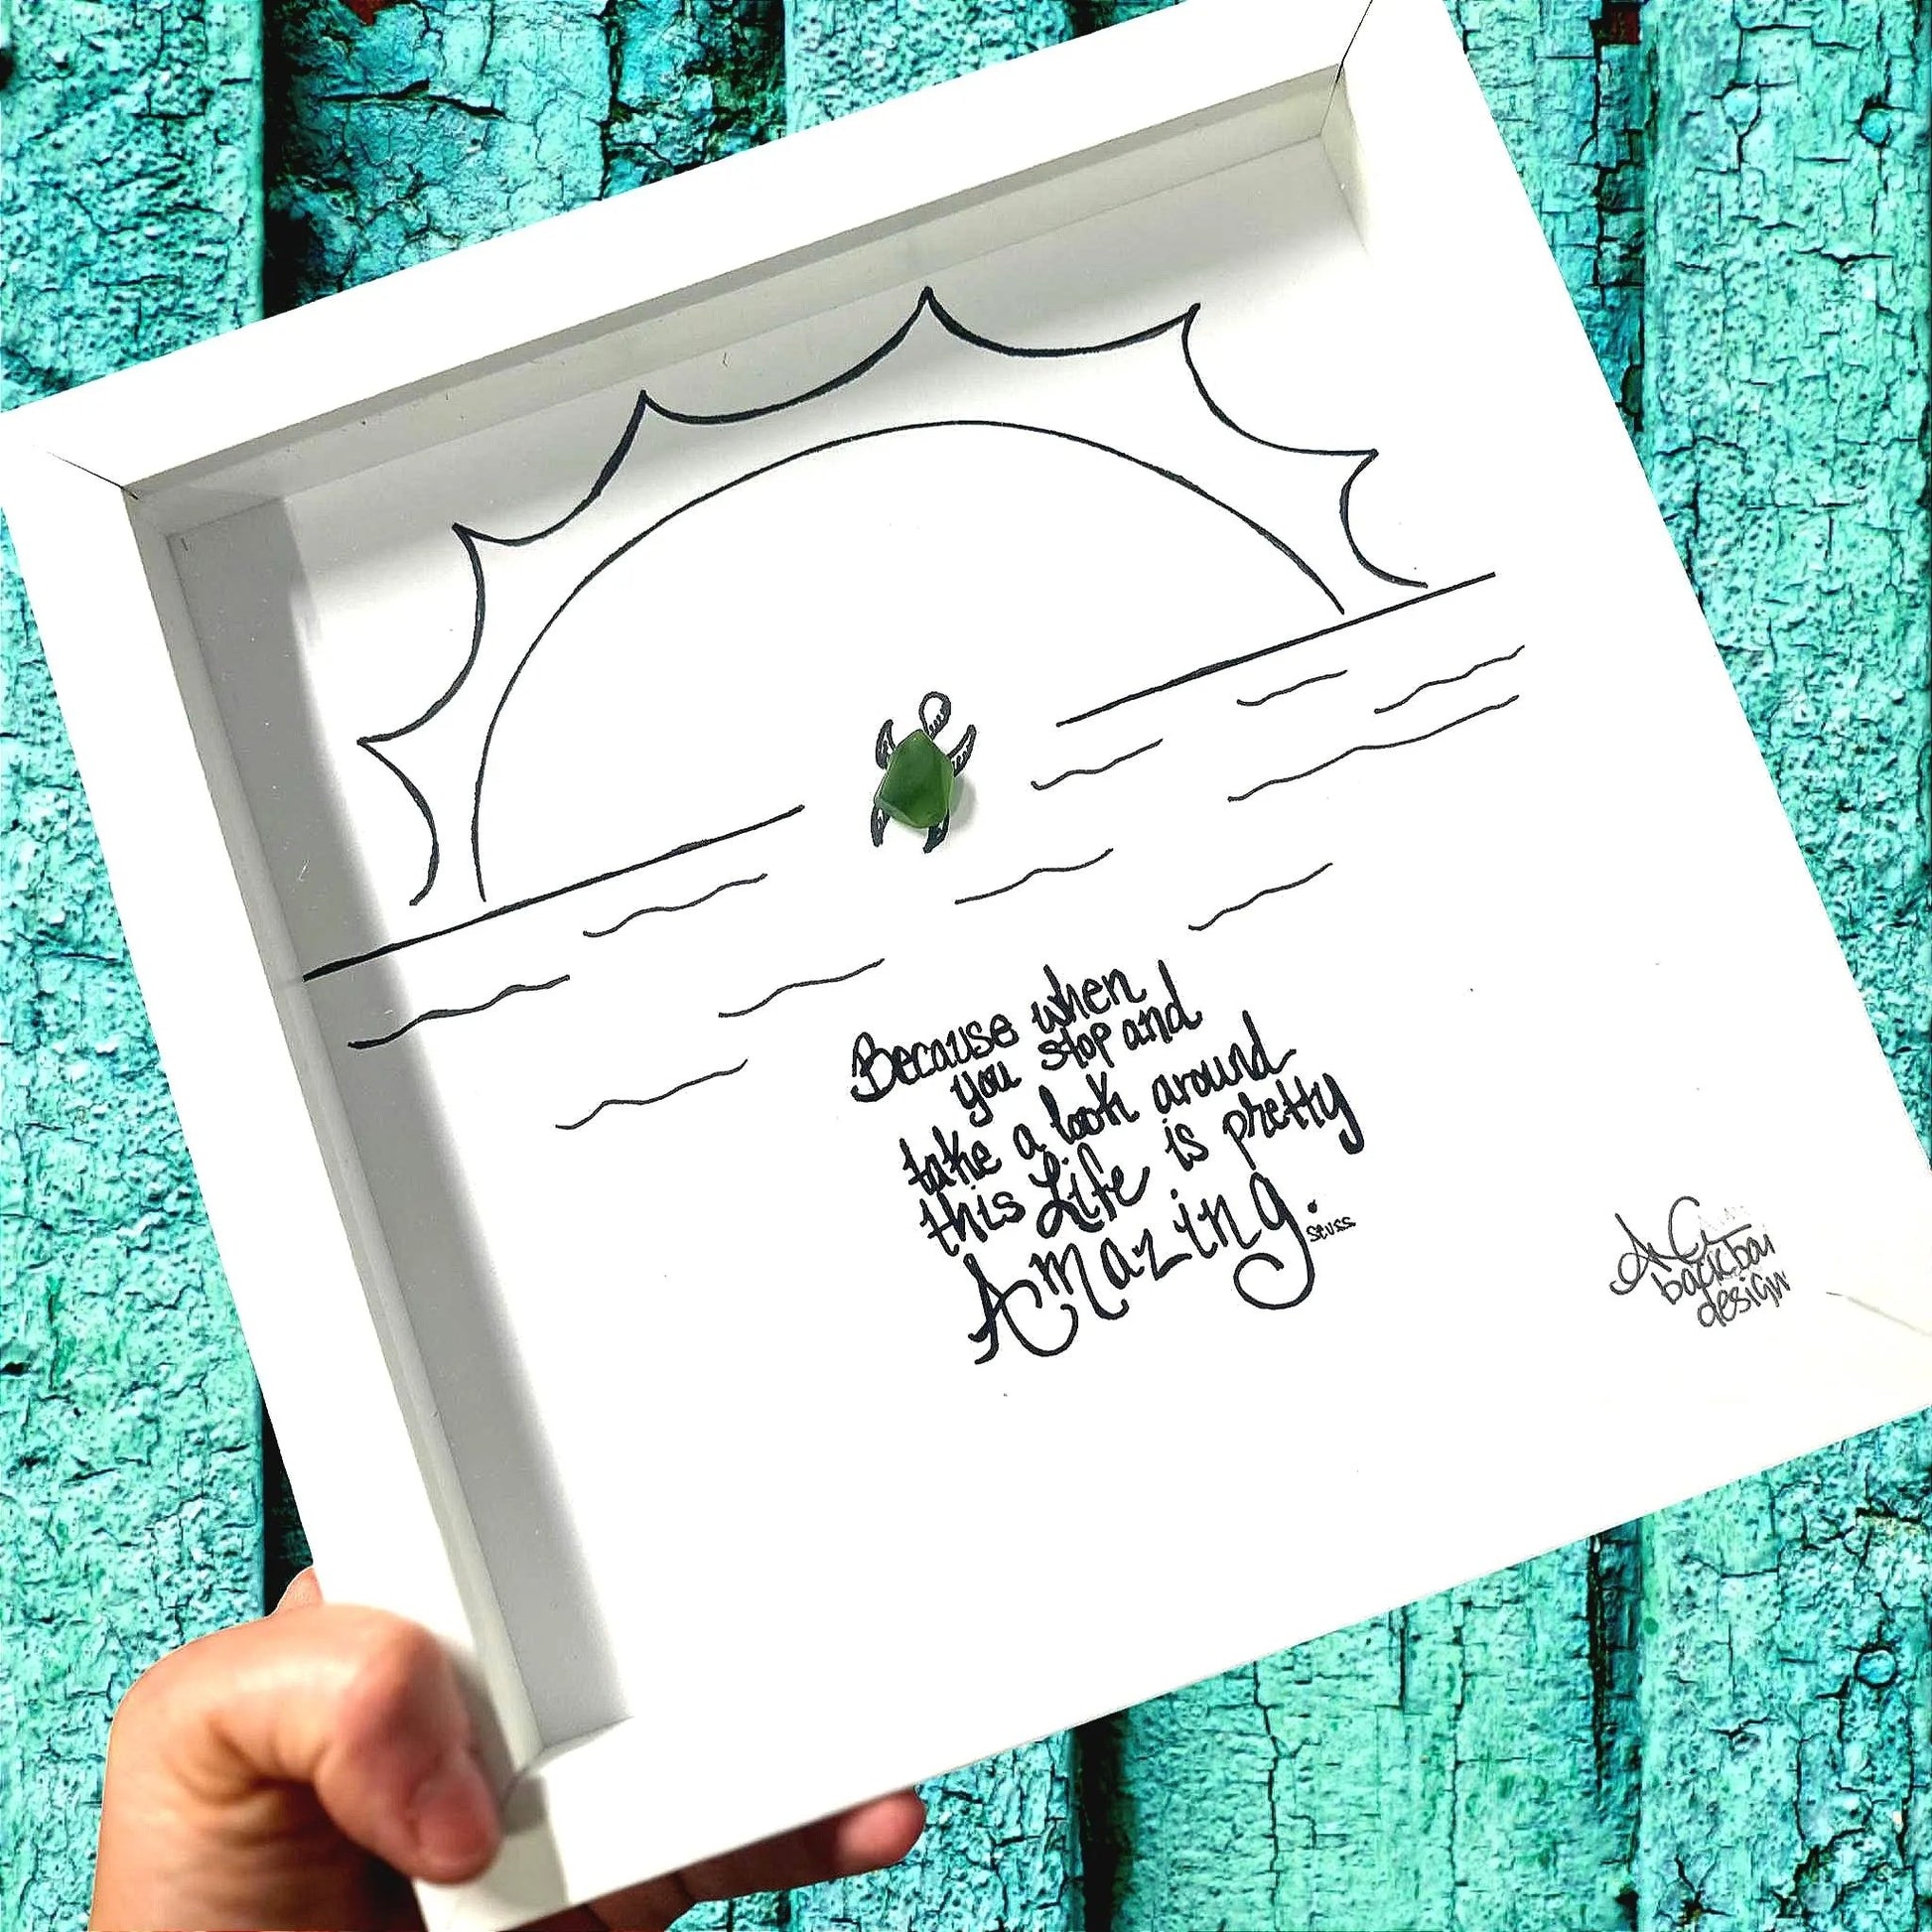 Because when
you stop and
take a look around
this Life is pretty
Amazing.
seuss
backbai
design